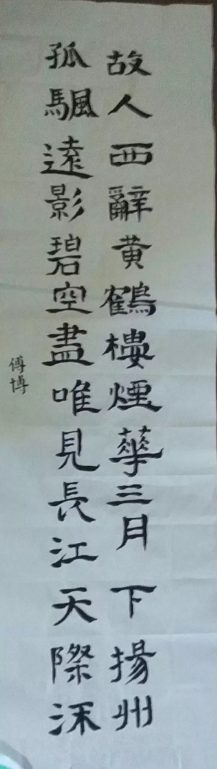 故人西辭黄鶴樓煙華三月下揚州
孤颿遠影碧空盡唯見長江天際流
傅博